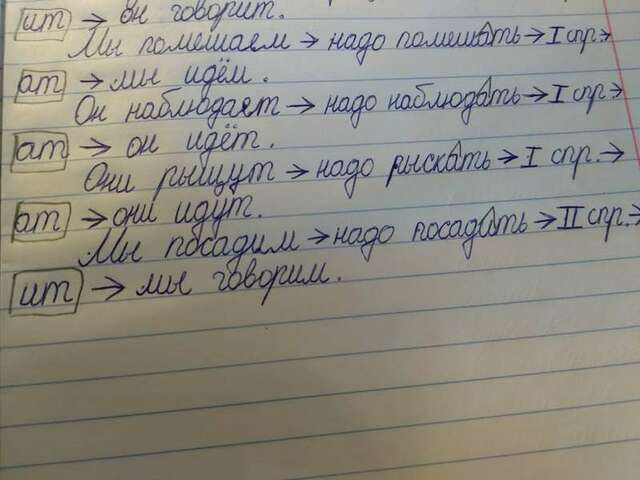 ит → он говорит.
Мы помешаем → надо помешать → I спр. →
ат → мы идём.
Он наблюдает → надо наблюдать → I спр. →
ат → он идёт.
Они рыщут → надо рыскать → I спр. →
ат → они идут.
Мы посадим → надо посадить → II спр. →
ит → мы говорим.